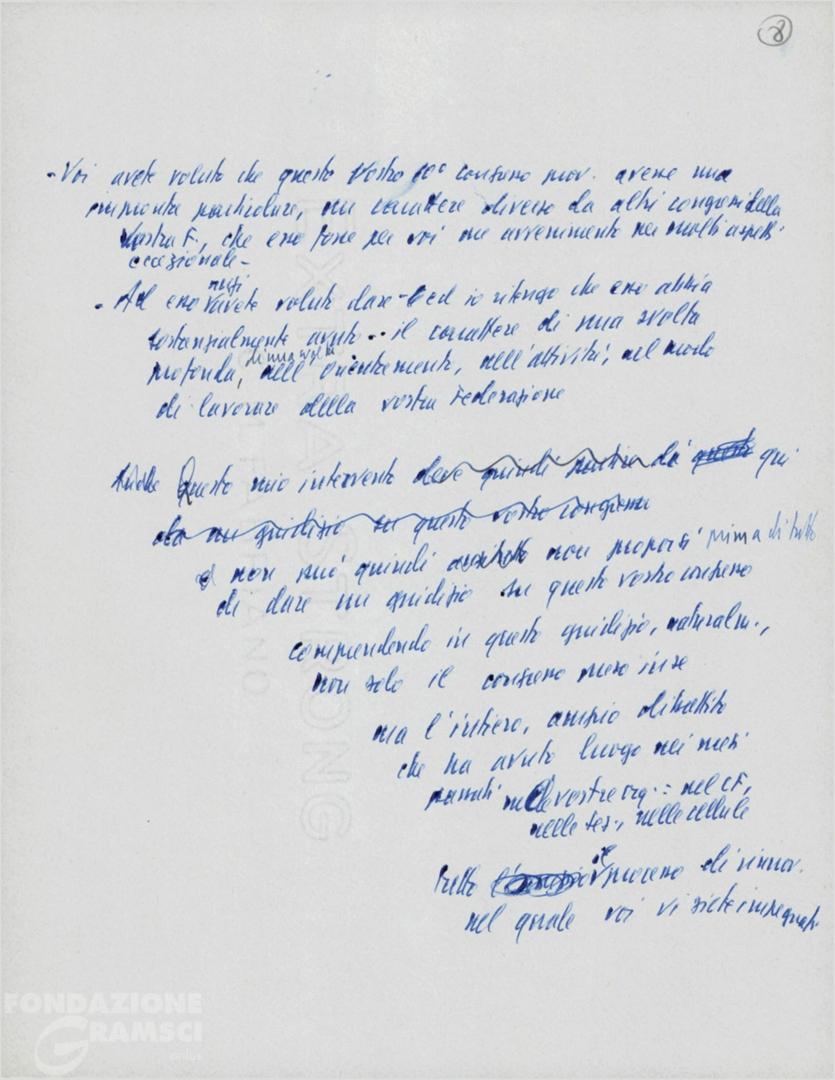 8
- Voi avete voluto che questo Vostro 10° congresso prov. avesse una
impronta particolare, un carattere diverso da altri congressi della
Vostra F., che esso fosse per voi un avvenimento per molti aspetti
eccezionale -
- Ad esso voi avete voluto dare - ed io ritengo che esso abbia
sostanzialmente avuto - il carattere di una svolta
profonda, di una svolta nell'orientamento, nell'attività, nel modo
di lavorare della vostra Federazione
Questo mio intervento deve quindi qui
da un giudizio su questo vostro congresso
non può quindi non proporsi prima di tutto
di dare un giudizio su questo vostro congresso
comprendendo in questo giudizio, naturalm.,
non solo il congresso preso in se
ma l'intiero, ampio dibattito
che ha avuto luogo nei mesi
passati nelle vostre org.: nel CF,
nelle sez., nelle cellule
tutto il processo di rinnov.
nel quale voi vi siete impegnati
FONDAZIONE
GRAMSCI
onlus
EXTRA STRONG